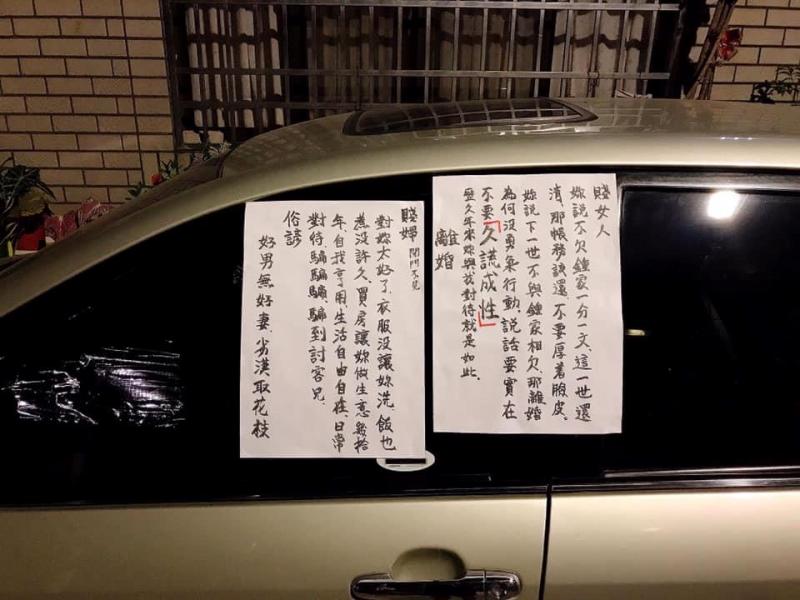 賤女人
妳說不欠鍾家一分一文、這一世還
清、那帳務訣還、不要厚着臉皮、
妳說下一世不與鍾家相欠、那離婚
為何没勇氣行動、説話要實在
不要「久謊成性」
歷久年來妳與我對待就是如此、
離婚
賤婦 閉門不見
對妳太好了、衣服没讓妳洗、飯也
煮没許久、買房讓妳做生意幾拾
年、自我享用、生活自由自在、日常
對待、騙騙騙、騙到討客兄、
俗諺
好男無好妻、劣漢取花枝